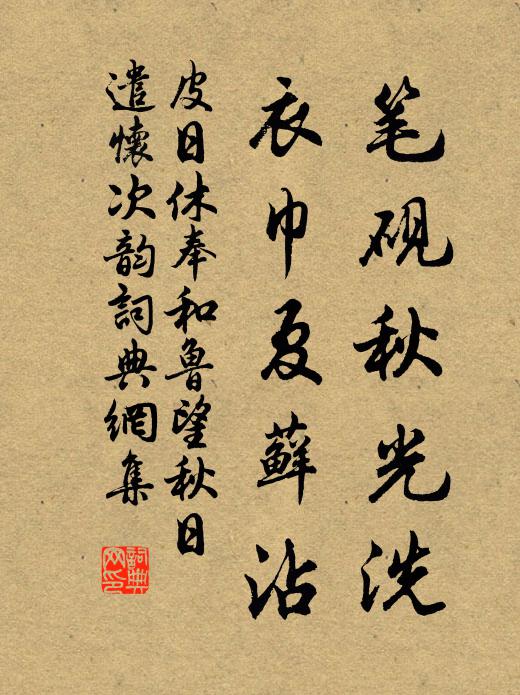 笔砚秋光洗
衣巾夏藓沾
皮日休奉和鲁望秋日
遣懷次韵詞典網集
詞典网印